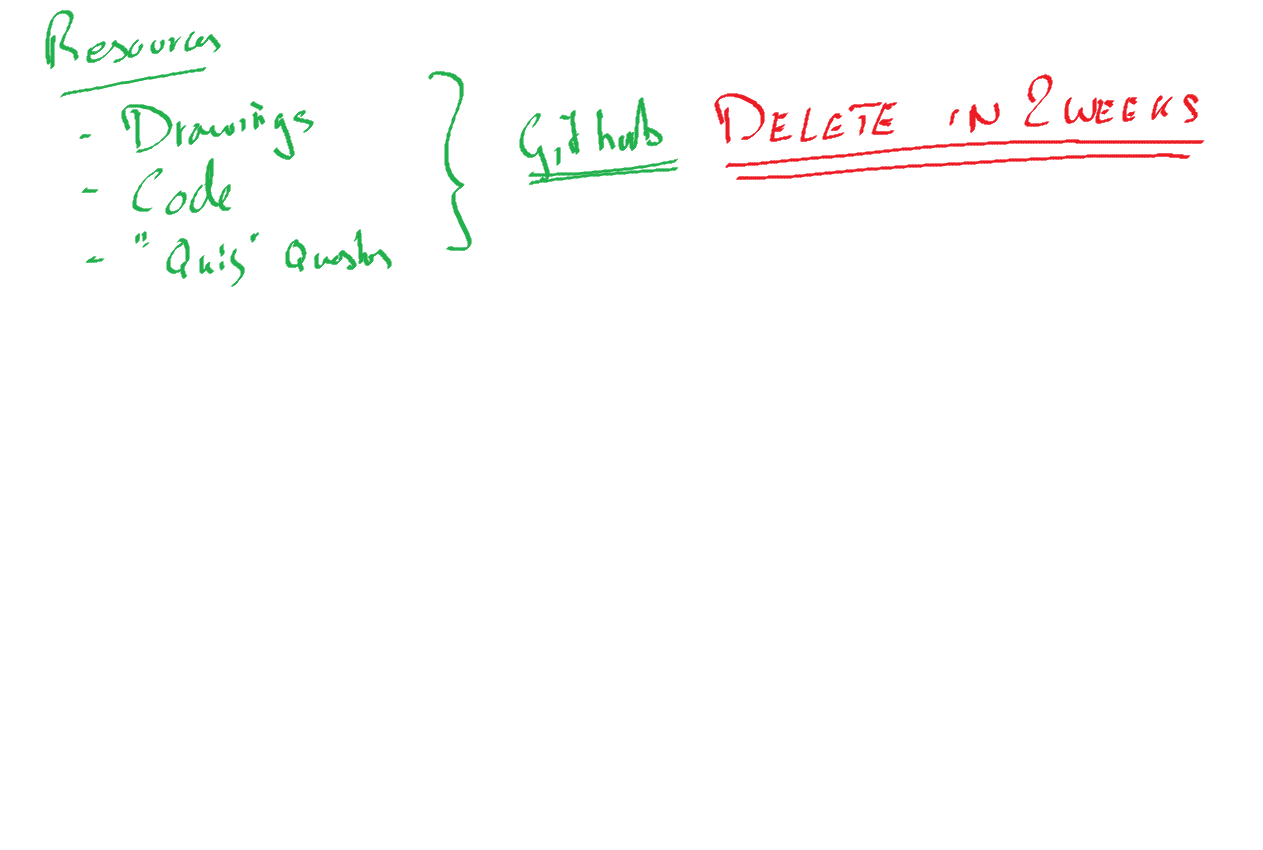 Resources
- Drawings
- Code
- "Quiz" Questos
Github
DELETE IN 2 WEEKS